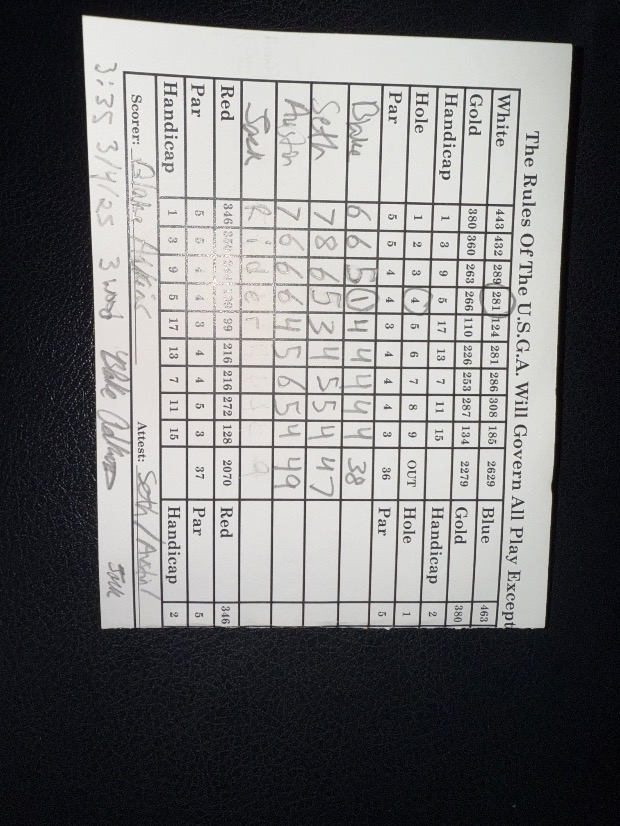 The Rules Of The U.S.G.A. Will Govern All Play Except
White 443 432 289 281 124 281 286 308 185 2629 Blue 463
Gold 380 360 263 266 110 226 253 287 134 2279 Gold 380
Handicap 1 3 9 5 17 13 7 11 15 Handicap 2
Hole 1 2 3 4 5 6 7 8 9 OUT Hole 1
Par 5 5 4 4 3 4 4 4 3 36 Par 5
Blake 6 6 5 1 4 4 4 4 4 38
Seth 7 8 6 5 3 4 5 5 4 47
Austin 7 6 6 6 4 5 6 5 4 49
Jack Rider
Red 346 99 216 216 272 128 2070 Red 346
Par 5 5 4 4 3 4 4 5 3 37 Par 5
Handicap 1 3 9 5 17 13 7 11 15 Handicap 2
Scorer: Blake Attest: Seth / Austin
3:35 3/4/25 3 wood Blake